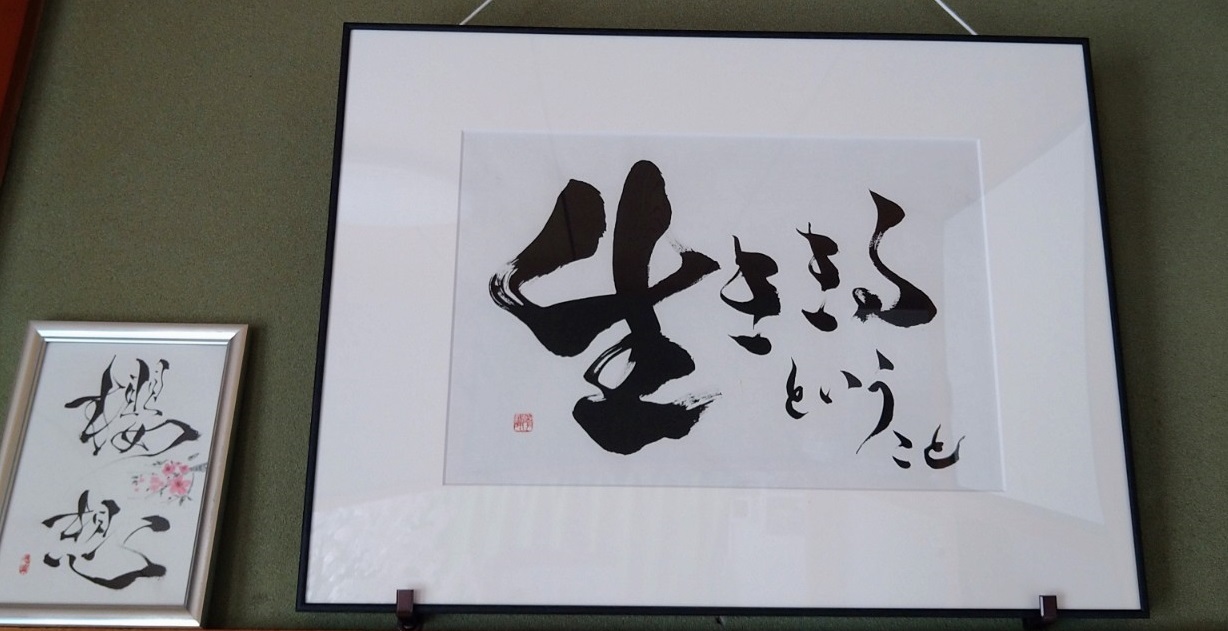 櫻
想
生ききる
という
こと